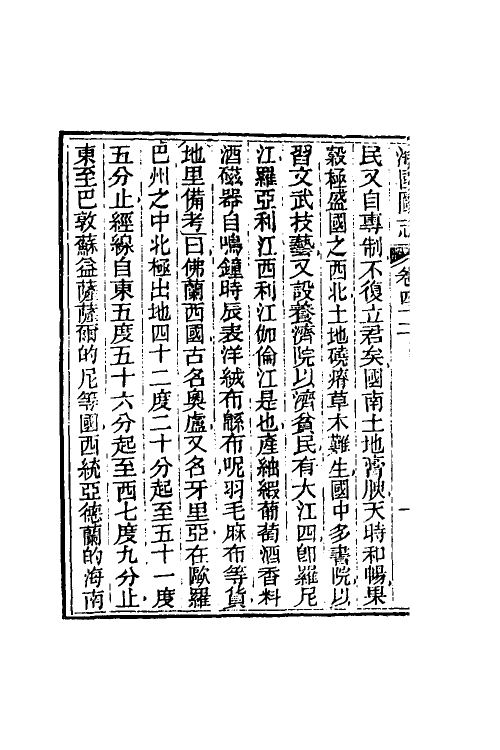 海國圖志 卷四十二 一
民又自專制不復立君矣國南土地膏腴天時和暢果
穀極盛國之西北土地磽瘠草木難生國中多書院以
習文武技藝又設養濟院以濟貧民有大江四卽羅尼
江羅亞利江西利江伽倫江是也產紬緞葡萄酒香料
酒磁器自鳴鐘時辰表洋絨布緜布呢羽毛麻布等貨
地里備考曰佛蘭西國古名奧盧又名牙里亞在歐羅
巴州之中北極出地四十二度二十分起至五十一度
五分止經線自東五度五十六分起至西七度九分止
東至巴敦蘇益薩薩爾的尼等國西統亞德蘭的海南